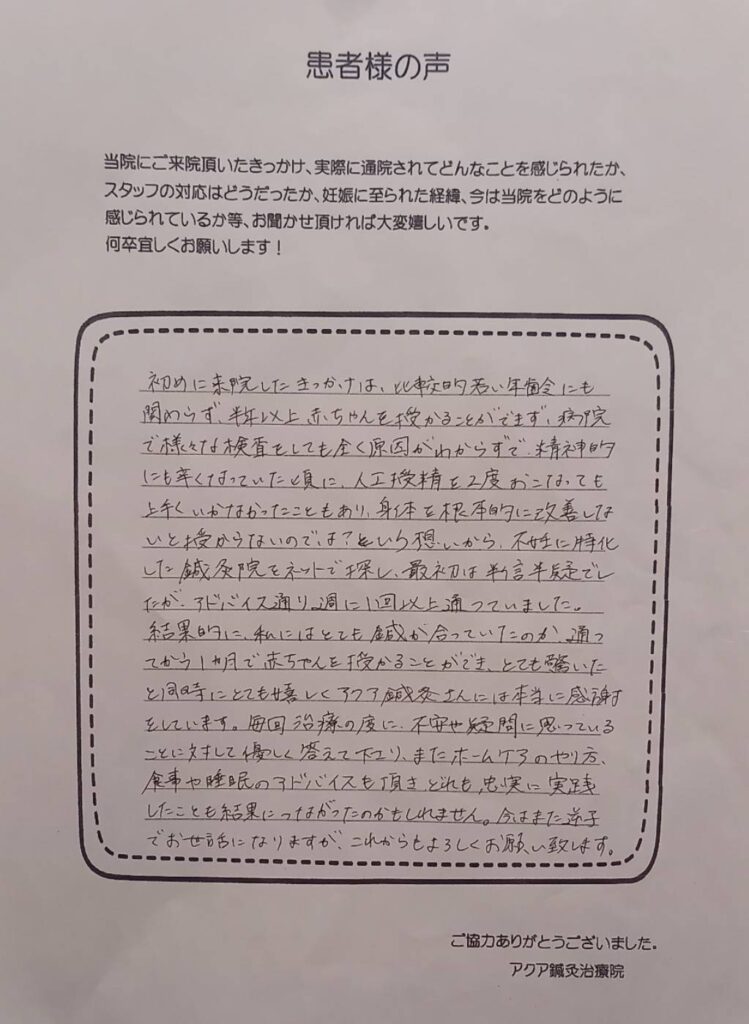 患者様の声
当院にご来院頂いたきっかけ、実際に通院されてどんなことを感じられたか、
スタッフの対応はどうだったか、妊娠に至られた経緯、今は当院をどのように
感じられているか等、お聞かせ頂ければ大変嬉しいです。
何卒宜しくお願いします！
初めに来院したきっかけは、比較的若い年齢にも
関わらず、半年以上赤ちゃんを授かることができず、病院
で様々な検査をしても全く原因がわからずで、精神的
にも辛くなっていた頃に、人工授精を2度おこなっても
上手くいかなかったこともあり、身体を根本的に改善しな
いと授からないのでは？という想いから、不妊に特化
した鍼灸院をネットで探し、最初は半信半疑でし
たが、アドバイス通り週に1回以上通っていました。
結果的に、私にはとても鍼が合っていたのか、通っ
てから1ヵ月で赤ちゃんを授かることができ、とても驚いた
と同時にとても嬉しくアクア鍼灸さんには本当に感謝
をしています。毎回治療の度に、不安や疑問に思っている
ことに対して優しく答えて下さり、またホームケアのやり方、
食事や睡眠のアドバイスも頂きどれも忠実に実践
したことも結果につながったのかもしれません。今はまた逆子
でお世話になりますが、これからもよろしくお願い致します。
ご協力ありがとうございました。
アクア鍼灸治療院